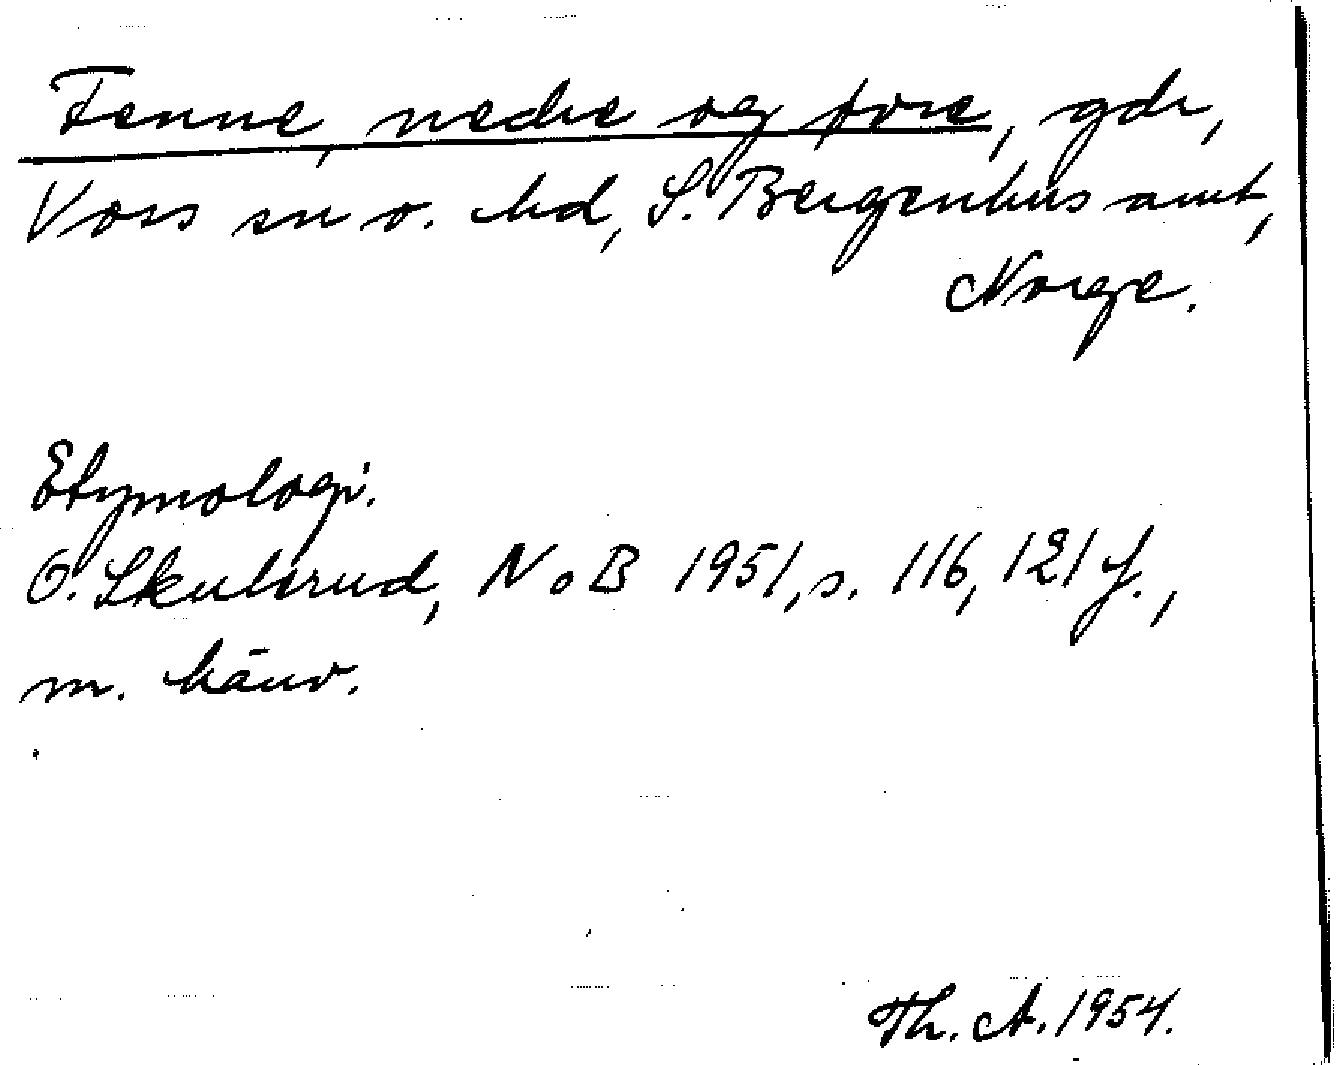 Fenne, nedre og övre, gdr,
Voss sn o. hd, S. Bergenhus amt,
Norge.
Etymologi.
O. Skulerud, NoB 1951, s. 116, 121 f.,
m. hänv.
Th. A. 1954.